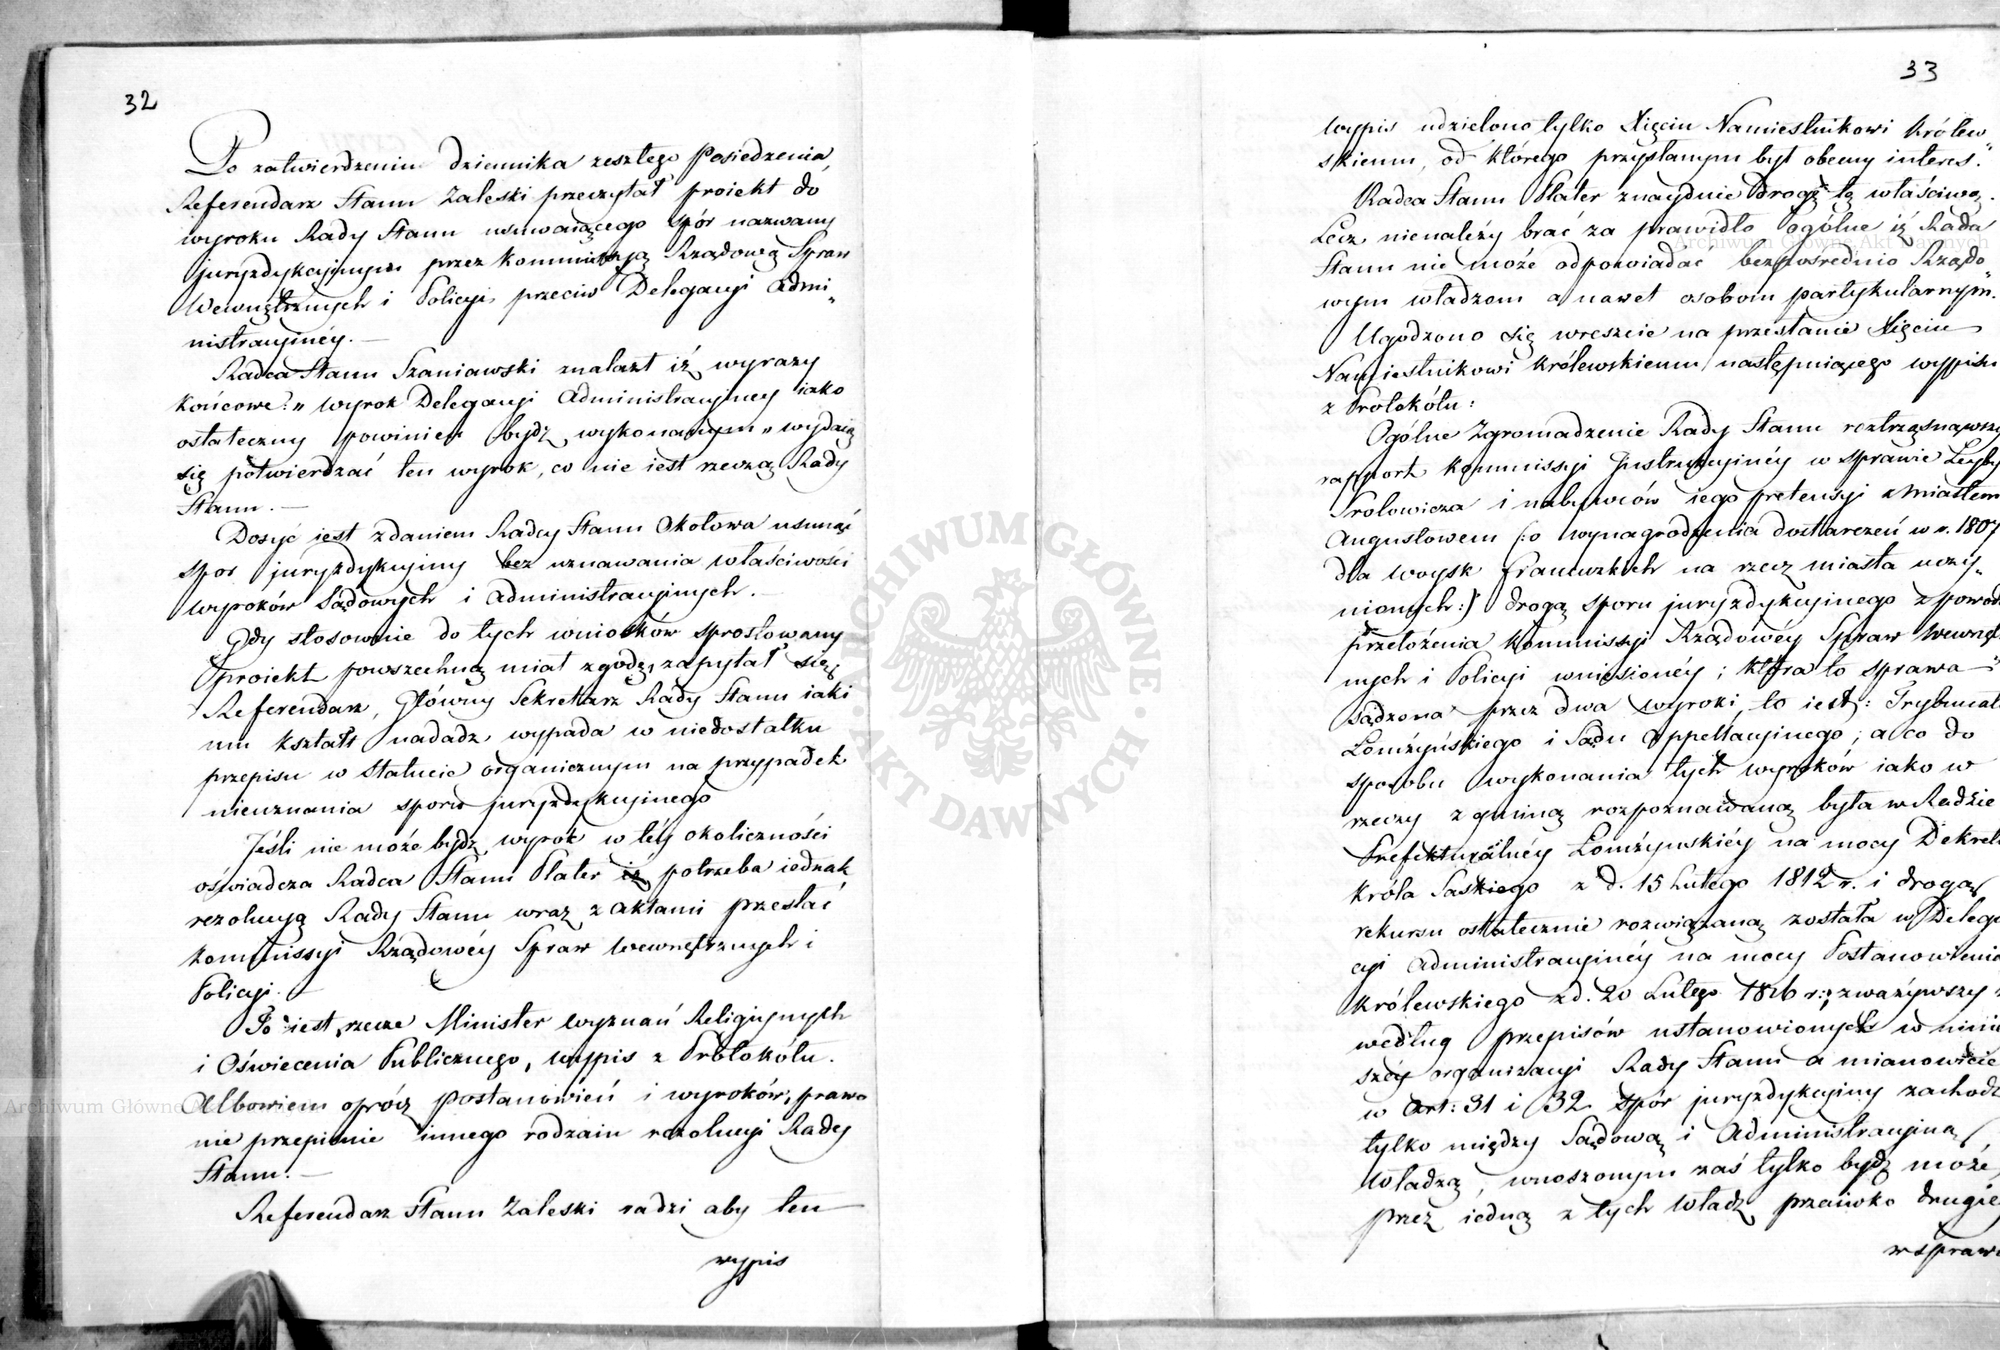 32
Po zatwierdzeniu dziennika zeszłego Posiedzenia,
Referendarz Stanu Zaleski przeczytał proiekt do
wyroku Rady Stanu usuwaiącego spór nazwany
juryzdykcyjnym przez Kommissyą Rządową Spraw
Wewnętrznych i Policyi, przeciw Delegacyi Admi„
nistracyjnéy. —
Radca Stanu Szaniawski znalazł iż wyrazy
końcowe: „ wyrok Delegacyi Administracyjney iako
ostateczny powinien bydź wykonanym „ wydaią
się potwierdzać ten wyrok, co nie iest rzeczą Rady
Stanu. —
Dosyć iest zdaniem Radcy Stanu Okołowa usunąć
spor juryzdykcyjny bez uznawania właściwości
wyroków Sądowych i Administracyjnych. —
Gdy stosownie do tych wniosków sprostowany
proiekt powszechną miał zgodę, zapytał się
Referendarz, Główny Sekretarz Rady Stanu iaki
mu kształt nadadź wypada w niedostatku
przepisu w Statucie organicznym na przypadek
nieuznania sporu juryzdykcyjnego
Jeśli nie może bydź wyrok w téy okoliczności
oświadcza Radca Stanu Plater iż potrzeba iednak
rezolucyą Rady Stanu wraz z aktami przesłać
Kommissyi Rządowéy Spraw Wewnętrznych i
Policyi. —
Jo iest, rzecze Minister Wyznań Religijnych
i Oświecenia Publicznego, wypis z Protokółu.
Albowiem oprócz postanowień i wyroków, prawo
nie przepisuie innego rodzaiu rezolucyi Rady
Stanu. —
Referendarz Stanu Zaleski radzi aby ten
wypis
33
wypis udzielono tylko Xięciu Namiestnikowi Królew„
skiemu, od którego przysłanym był obecny interes.
Radca Stanu Plater znayduie drogę tę właściwą.
Lecz nienależy brać za prawidło ogólne iż Rada
Stanu nie może odpowiadać bezpośrednio Rządo„
wym władzom a nawet osobom partykularnym.
Ugodzono się wreszcie na przesłanie Xięciu
Namiestnikowi Królewskiemu następuiącego wypisu
z Protokółu:
Ogólne Zgromadzenie Rady Stanu roztrząsnąwszy
rapport Kommissyi Instrukcyjnéy w sprawie Leyby
Prolowicza i nabywców iego pretensyi z Miastem
Augustowem (:o wynagrodzenia dostarczeń w r. 1807
dla woysk francuzkich na rzecz miasta uczy„
nionych:) drogą sporu juryzdykcyjnego z powodu
przełożenia Kommissyi Rządowéy Spraw Wewnętrz
nych i Policyi wniesionéy; która to sprawa
sądzona przez dwa wyroki, to iest: Trybunału
Łomżyńskiego i Sądu Appellacyjnego; a co do
sposobu wykonania tych wyroków iako w
rzeczy z gminą rozpoznawaną była w Radzie
Prefekturalnéy Łomżyńskiéy na mocy Dekretu
Króla Saskiego z d. 15 Lutego 1812 r. i drogą
rekursu ostatecznie rozwiązaną została w Delega
cyi Administracyjnéy na mocy Postanowienia
Królewskiego z d. 20 Lutego 1816 r:; zważywszy
według przepisów ustanowionych w ninie
széy organizacyi Rady Stanu a mianowicie
w Art: 31 i 32 spór juryzdykcyjny zachodzi
tylko między Sądową i Administracyjną
Władzą, wnoszonym zaś tylko bydź może,
przez iedną z tych Władz przeciwko drugiéy
w sprawie
Archiwum Główne Akt Dawnych
ARCHIWUM GŁÓWNE · AKT DAWNYCH ·
Archiwum Główne Akt Dawnych